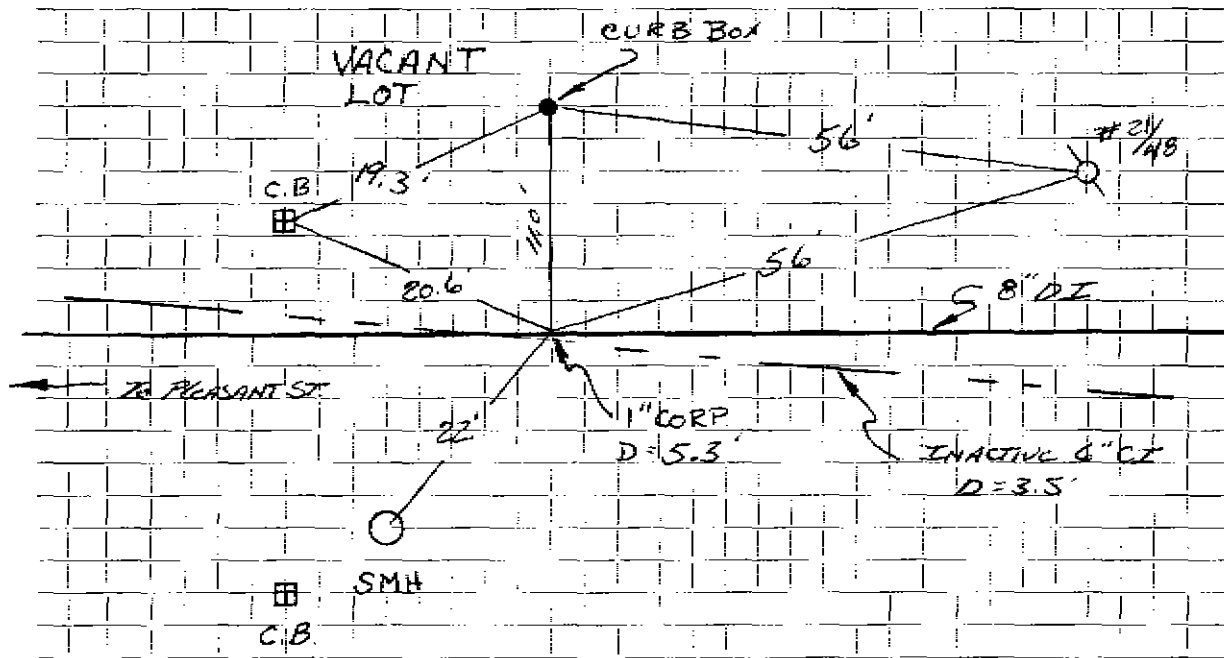 CURB BOX
VACANT
LOT
56'
#21/48
19.3'
C.B.
20.6'
56'
8" DI
To PLEASANT ST
22'
1" CORP
D=5.3'
INACTIVE 6" CI
D=3.5'
SMH
C.B.